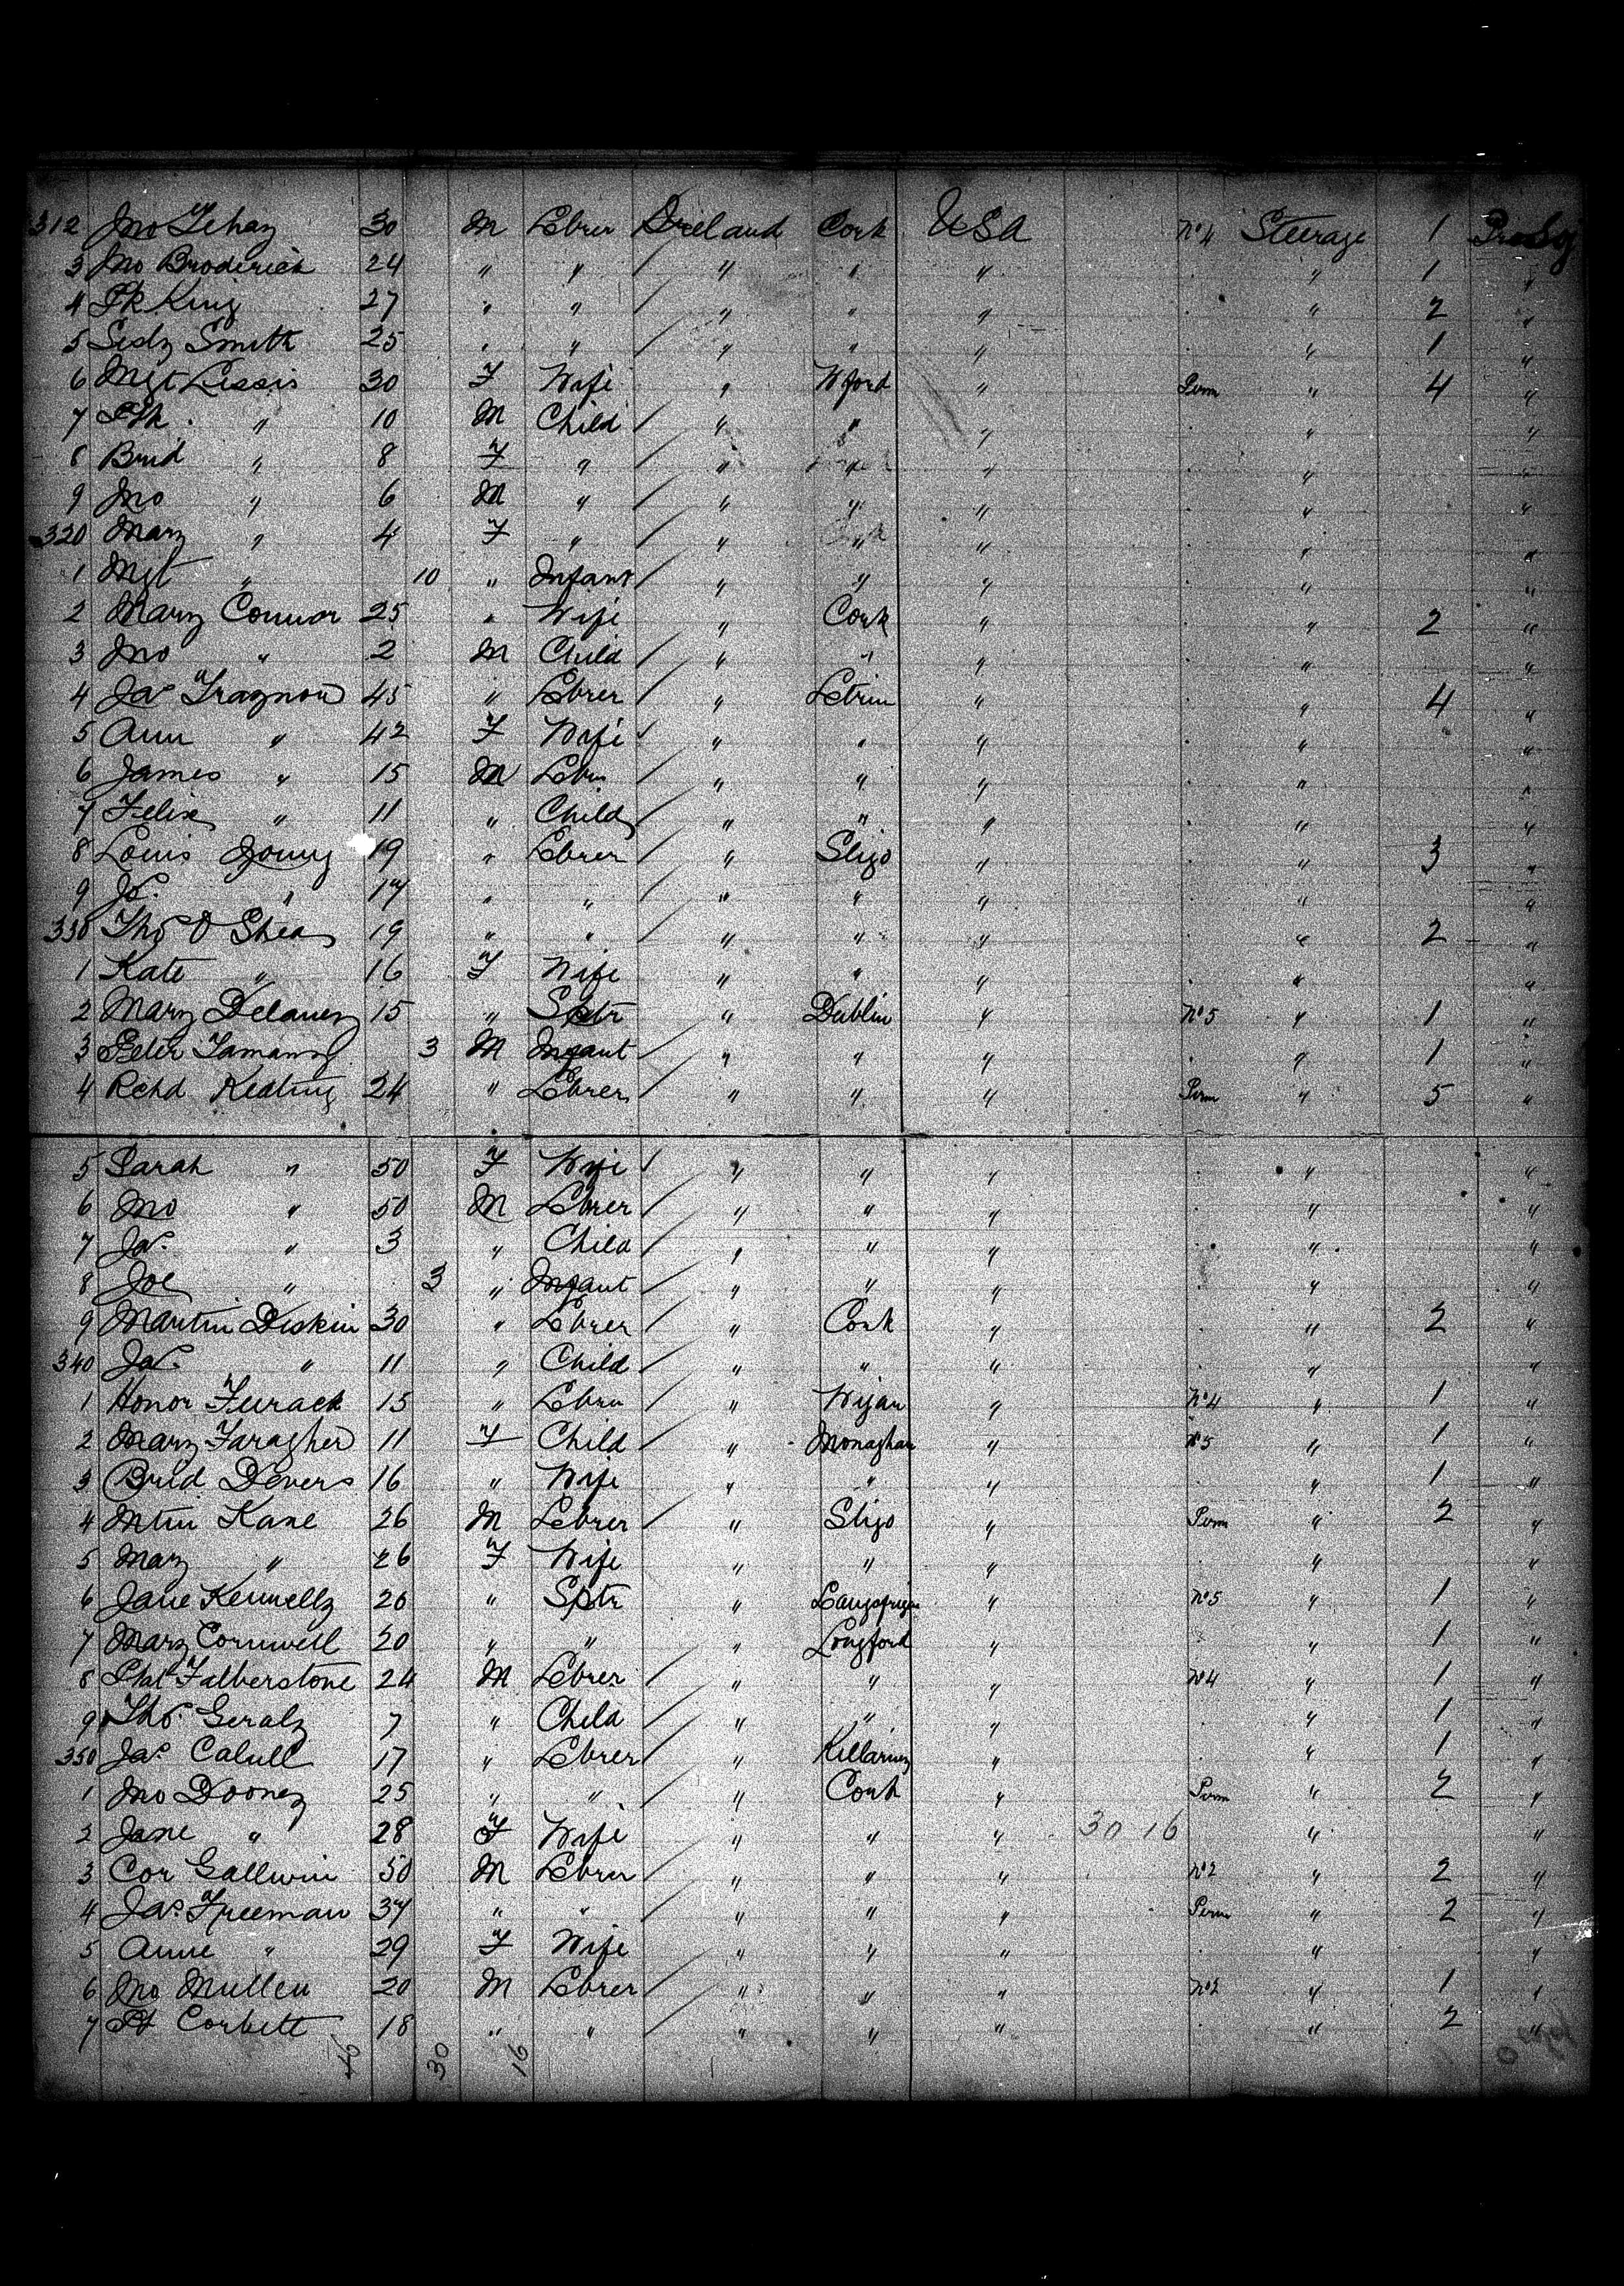 312 Jno Fehay 30 M Lbrer Ireland Cork USA No 4 Steerage 1
3 Jno Broderick 24 " " " " " " 1 "
4 Pk King 27 " " " " " " 2 "
5 Sidy Smith 25 " " " " " " 1 "
6 Mgt Lissis 30 F Wife " Wford " Perm " 4 "
7 Pk " 10 M Child " " " " "
8 Brid " 8 F " " " " " "
9 Jno " 6 M " " " " " "
320 Mary " 4 F " " " " " "
1 Mgt " 10 " Infant " " " " "
2 Mary Connor 25 " Wife " Cork " " 2 "
3 Jno " 2 M Child " " " " "
4 Jas Traynor 45 " Lbrer " Letrim " " 4 "
5 Ann " 42 F Wife " " " " "
6 James " 15 M Lbrer " " " " "
7 Felix " 11 " Child " " " " "
8 Louis Young 19 " Lbrer " Sligo " " 3 "
9 Js. " 17 " " " " " " "
330 Thos O Shea 19 " " " " " " 2 "
1 Kate " 16 F Wife " " " " "
2 Mary Delaney 15 " Sptr " Dublin " No 5 " 1 "
3 Peter 3 M Infant " " " " 1 "
4 Rchd Keating 24 " Lbrer " " " Perm " 5 "
5 Sarah " 50 F Wife " " " " "
6 Jno " 50 M Lbrer " " " " "
7 Jas. " 3 " Child " " " " "
8 Joe " 3 " Infant " " " " "
9 Martin Diskin 30 " Lbrer " Cork " " 2 "
340 Jas. " 11 " Child " " " " "
1 Honor 15 " Lbrer " " No 4 " 1 "
2 Mary Faragher 11 F Child " Monaghan " No 5 " 1 "
3 Brid Devers 16 " Wife " " " " 1 "
4 Mtin Kane 26 M Lbrer " Sligo " Perm " 2 "
5 Mary " 26 F Wife " " " " "
6 Jane Kennelly 26 " Sptr " " No 5 " 1 "
7 Mary Cornwell 20 " " " Longford " " 1 "
8 Falberstone 24 M Lbrer " " " No 4 " 1 "
9 Thos Geraly 7 " Child " " " " 1 "
350 Jas. Cahill 17 " Lbrer " Killarney " " 1 "
1 Jno Dooney 25 " " " Cork " Perm " 2 "
2 Jane " 28 F Wife " " " 30 16 " "
3 Cor Gallwin 50 M Lbrer " " " No 2 " 2 "
4 Jas. Freeman 37 " " " " " Perm " 2 "
5 Anne " 29 F Wife " " " " "
6 Jno Mullen 20 M Lbrer " " " No 2 " 1 "
7 Pt Corbett 18 " " " " " " 2 "
30 16